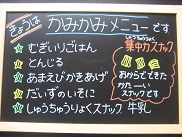 きょうは
かみかみメニューです
むぎいりごはん
とんじる
あまえびかきあげ
だいずのいそに
しゅうちゅうりょくスナック 牛乳
しゅうちゅうりょく
集中力スナック
おからでできた
かたーい
スナックです